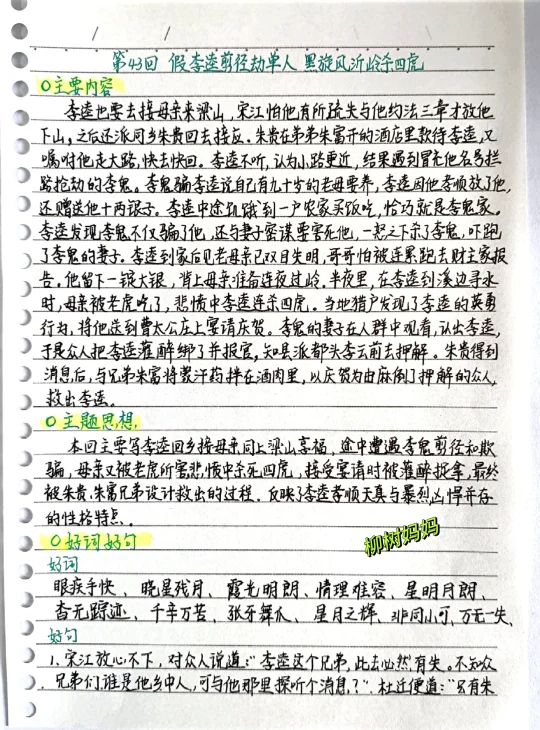 第43回 假李逵剪径劫单人 黑旋风沂岭杀四虎
○主要内容
李逵也要去接母亲来梁山,宋江怕他有所疏失与他约法三章才放他
下山,之后还派同乡朱贵回去接应。朱贵在弟弟朱富开的酒店里款待李逵,又
嘱咐他走大路,快去快回。李逵不听,认为小路更近,结果遇到冒充他名号拦
路抢劫的李鬼。李鬼骗李逵说自己有九十岁的老母要养,李逵因他孝顺放了他,
还赠送他十两银子。李逵中途饥饿到一户农家买饭吃,恰巧就是李鬼家。
李逵发现李鬼不仅骗了他,还与妻子密谋要害死他,一怒之下杀了李鬼,吓跑
了李鬼的妻子。李逵到家后见老母亲已双目失明,哥哥怕被连累跑去财主家报
告。他留下一锭大银,背上母亲准备连夜过岭。半夜里,在李逵到溪边寻水
时,母亲被老虎吃了,悲愤中李逵连杀四虎。当地猎户发现了李逵的英勇
行为,将他送到曹太公庄上宴请庆贺。李鬼的妻子在人群中观看,认出李逵,
于是众人把李逵灌醉绑了并报官,知县派都头李云前去押解。朱贵得到
消息后,与兄弟朱富将蒙汗药拌在酒肉里,以庆贺为由麻倒了押解的众人,
救出李逵。
○主题思想
本回主要写李逵回乡接母亲同上梁山享福,途中遭遇李鬼剪径和欺
骗,母亲又被老虎所害悲愤中杀死四虎,接受宴请时被灌醉捉拿,最终
被朱贵、朱富兄弟设计救出的过程。反映了李逵孝顺天真与暴烈凶悍并存
的性格特点。
○好词好句
柳树妈妈
好词
眼疾手快、晓星残月、霞光明朗、情理难容、星明月朗、
杳无踪迹、千辛万苦、张牙舞爪、星月之辉、非同小可、万无一失、
好句
1.宋江放心不下,对众人说道:"李逵这个兄弟,此去必然有失。不知众
兄弟们谁是他乡中人,可与他那里探听个消息?"杜迁便道:"只有朱